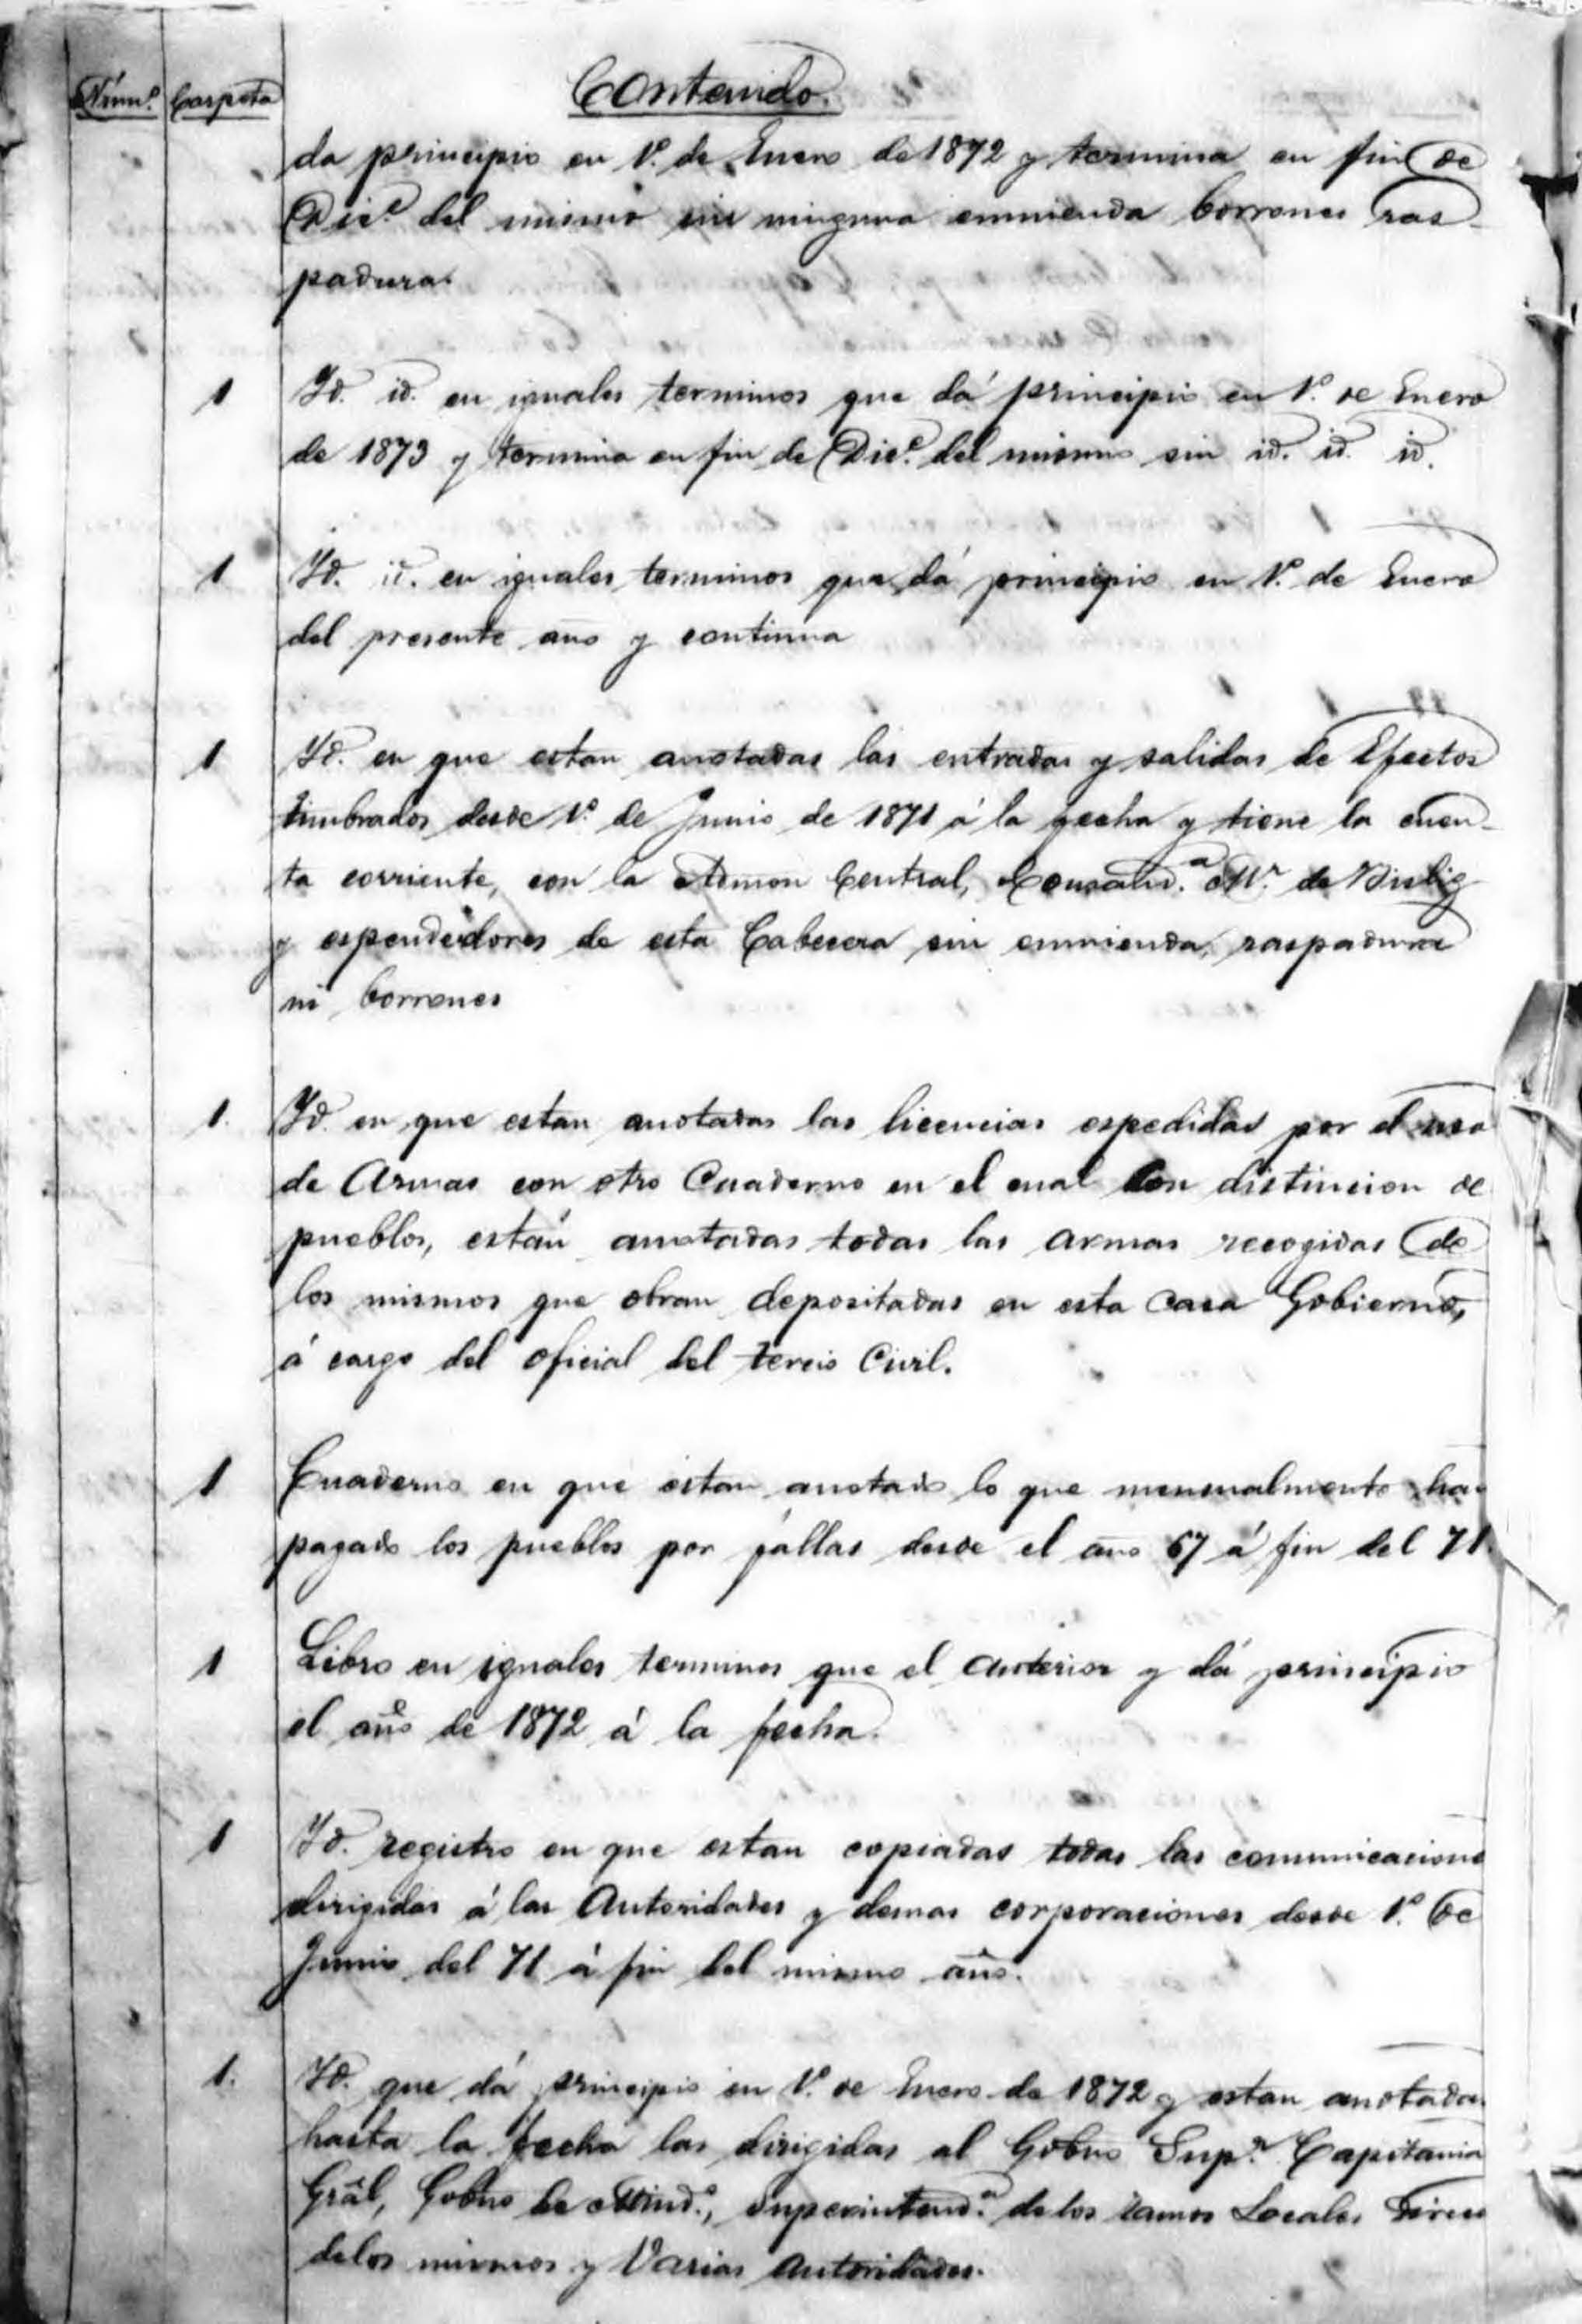 Núm.º Carpeta Contenido.
da principio en 1º. de Enero de 1872 y termina en fin de
Dic.e del mismo sin ninguna enmienda borrones ras-
padura.
1 Id. id. en iguales terminos que dá principio en 1º. de Enero
de 1873 y termina en fin de Dic.e del mismo sin id. id. id.
1 Id. id. en iguales terminos que dá principio en 1º. de Enero
del presente año y continua
1 Id. en que estan anotadas las entradas y salidas de Efectos
timbrados desde 1º. de Junio de 1871 á la fecha y tiene la cuen-
ta corriente, con la Admon Central, Comand.a Mr. de
y espendedores de esta Cabecera sin enmienda, raspadura
ni borrones
1. Id. en que estan anotadas las licencias espedidas por el uso
de Armas con otro Cuaderno en el cual con distincion de
pueblos, están anotadas todas las armas recogidas de
los mismos que obran depositadas en esta Casa Gobierno,
á cargo del oficial del tercio Civil.
1 Cuaderno en que estan anotado lo que mensualmente han
pagado los pueblos por fallas desde el año 67 á fin del 71.
1 Libro en iguales terminos que el anterior y dá principio
el año de 1872 á la fecha.
1 Id. registro en que estan copiadas todas las comunicaciones
dirigidas á las Autoridades y demas corporaciones desde 1º. de
Junio del 71 á fin del mismo año.
1. Id. que dá principio en 1º. de Enero de 1872 y estan anotadas
hasta la fecha las dirigidas al Gobno Sup.r Capitania
Grâl, Gobno de Mind.o, Superintend.a de los ramos Locales
delos mismos y Varias Autoridades.